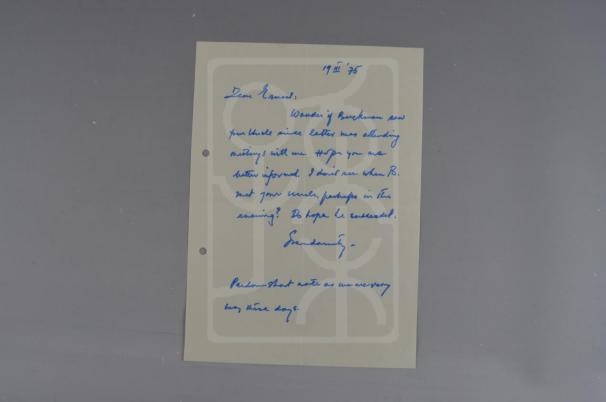 19 III '75
Dear Ernest:
Wonder if Buckman saw
your Uncle since latter was attending
meetings with me. Hope you are
better informed. I don't see when B.
met your Uncle, perhaps in the
evening? Do hope he succeeded.
Pardon short note as we are very
busy these days.